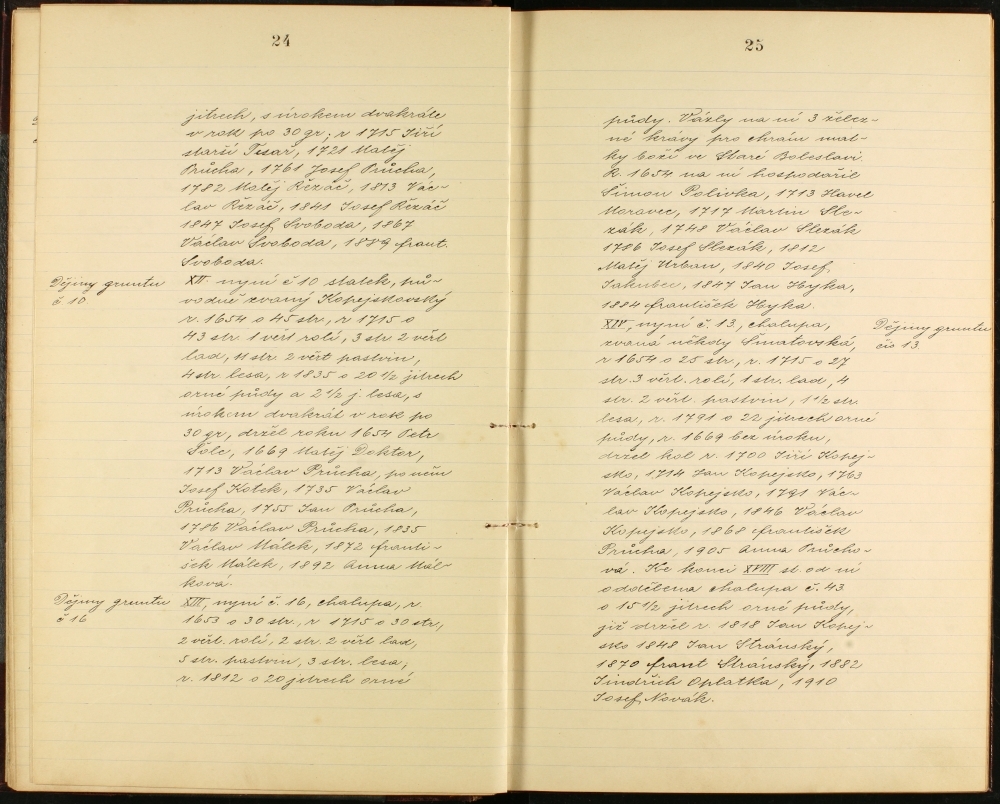 24
jitrech, s úrokem dvakráte
v rok po 30 gr; r 1715 Jiří
starší Tesař, 1721 Matěj
Průcha, 1761 Josef Průcha,
1782 Matěj Řezáč, 1813 Vác-
lav Řezáč, 1841 Josef Řezáč
1847 Josef Svoboda, 1867
Václav Svoboda, 1889 frant.
Svoboda.
Dějiny gruntu
č 10.
XII. nyní č 10 statek, pů-
vodně zvaný Kopejskovský
r. 1654 o 45 str., r 1715 o
43 str. 1 věrt rolí, 3 str 2 věrt
lad, 11 str. 2 věrt pastvin,
4 str. lesa, r 1835 o 20 1/2 jitrech
orné půdy a 2 1/2 j. lesa, s
úrokem dvakrát v rok po
30 gr, držel roku 1654 Petr
Šolc, 1669 Matěj Doktor,
1713 Václav Průcha, po něm
Josef Kotek, 1735 Václav
Průcha, 1755 Jan Průcha,
1786 Václav Průcha, 1835
Václav Málek, 1872 franti-
šek Málek, 1892 Anna Mál-
ková.
Dějiny gruntu
č 16
XIII, nyní č. 16, chalupa, r.
1653 o 30 str., r 1715 o 30 str,
2 věrt. rolí, 2 str. 2 věrt lad,
5 str. pastvin, 3 str. lesa,
r. 1812 o 20 jitrech orné
25
půdy. Vázly na ní 3 želez-
né krávy pro chrám mat-
ky boží ve Staré Boleslavi.
R. 1654 na ní hospodařil
Šimon Polívka, 1713 Havel
Moravec, 1717 Martin Sle-
zák, 1748 Václav Slezák
1786 Josef Slezák, 1812
Matěj Urban, 1840 Josef
Jakubec, 1847 Jan Hyka,
1884 František Hyka.
XIV, nyní č. 13, chalupa,
zvaná někdy Šmatovská,
r 1654 o 25 str, r. 1715 o 27
str. 3 věrt. rolí, 1 str. lad, 4
str. 2 věrt. pastvin, 1 1/2 str.
lesa, r. 1791 o 22 jitrech orné
půdy, r. 1669 bez úroku,
držel kol r. 1700 Jiří Kopej-
sko, 1714 Jan Kopejsko, 1763
Václav Kopejsko, 1791 Vác-
lav Kopejsko, 1846 Václav
Kopejsko, 1868 František
Průcha, 1905 Anna Průcho-
vá. Ke konci XVIII st. od ní
oddělena chalupa č. 43
o 15 1/2 jitrech orné půdy,
již držel r. 1818 Jan Kopej-
sko 1848 Jan Stránský,
1870 frant Stránský, 1882
Jindřich Oplatka, 1910
Josef Novák.
Dějiny gruntu
čís 13.